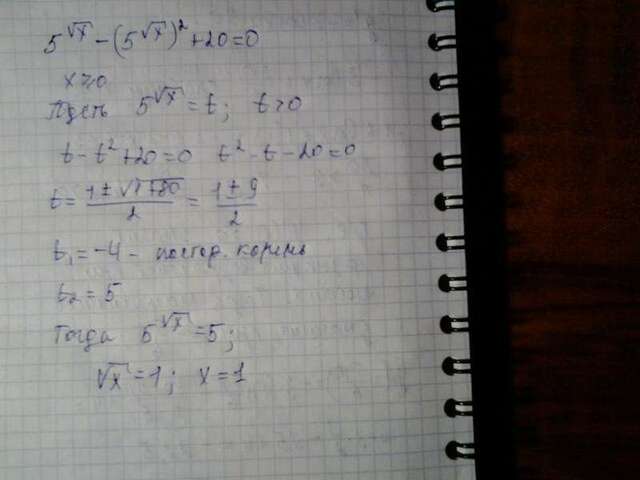 5^√x − (5^√x)² + 20 = 0
x ≥ 0
Пусть 5^√x = t; t > 0
t − t² + 20 = 0 t² − t − 20 = 0
t = (1 ± √(1+80))/2 = (1 ± 9)/2
t₁ = −4 − постор. корень
t₂ = 5
Тогда 5^√x = 5;
√x = 1; x = 1